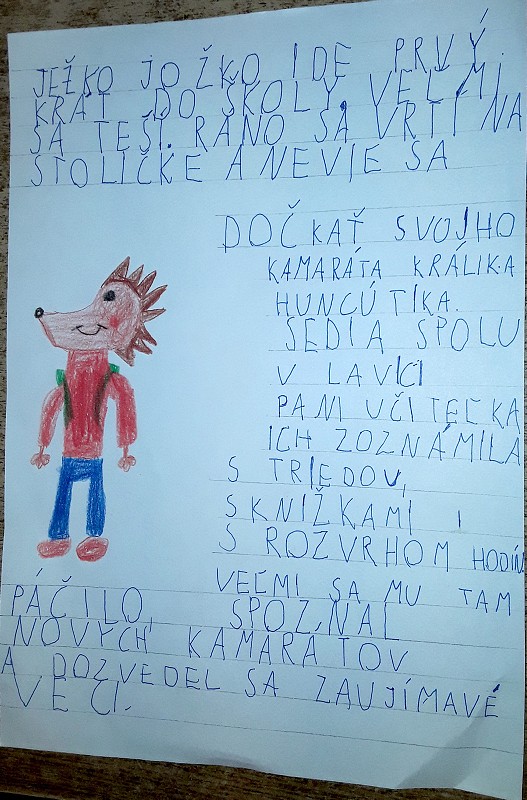 JEŽKO JOŽKO IDE PRVÝ
KRÁT DO ŠKOLY. VEĽMI
SA TEŠÍ. RÁNO SA VRTÍ NA
STOLIČKE A NEVIE SA
DOČKAŤ SVOJHO
KAMARÁTA KRÁLIKA
HUNCÚTIKA.
SEDIA SPOLU
V LAVICI
PANI UČITEĽKA
ICH ZOZNÁMILA
S TRIEDOU,
S KNIŽKAMI I
S ROZVRHOM HODÍN
VEĽMI SA MU TAM
PÁČILO, SPOZNAL
NOVÝCH KAMARÁTOV
A DOZVEDEL SA ZAUJÍMAVÉ
VECI.